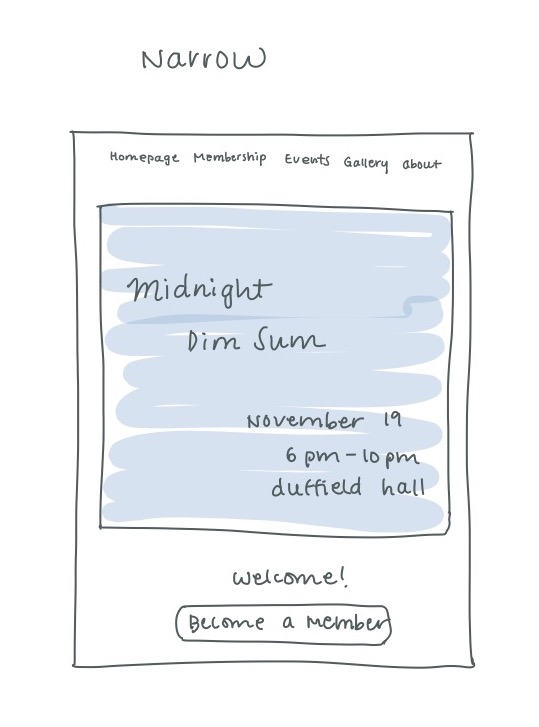 Narrow
Homepage Membership Events Gallery about
Midnight
Dim Sum
November 19
6 pm - 10 pm
duffield hall
Welcome!
Become a Member